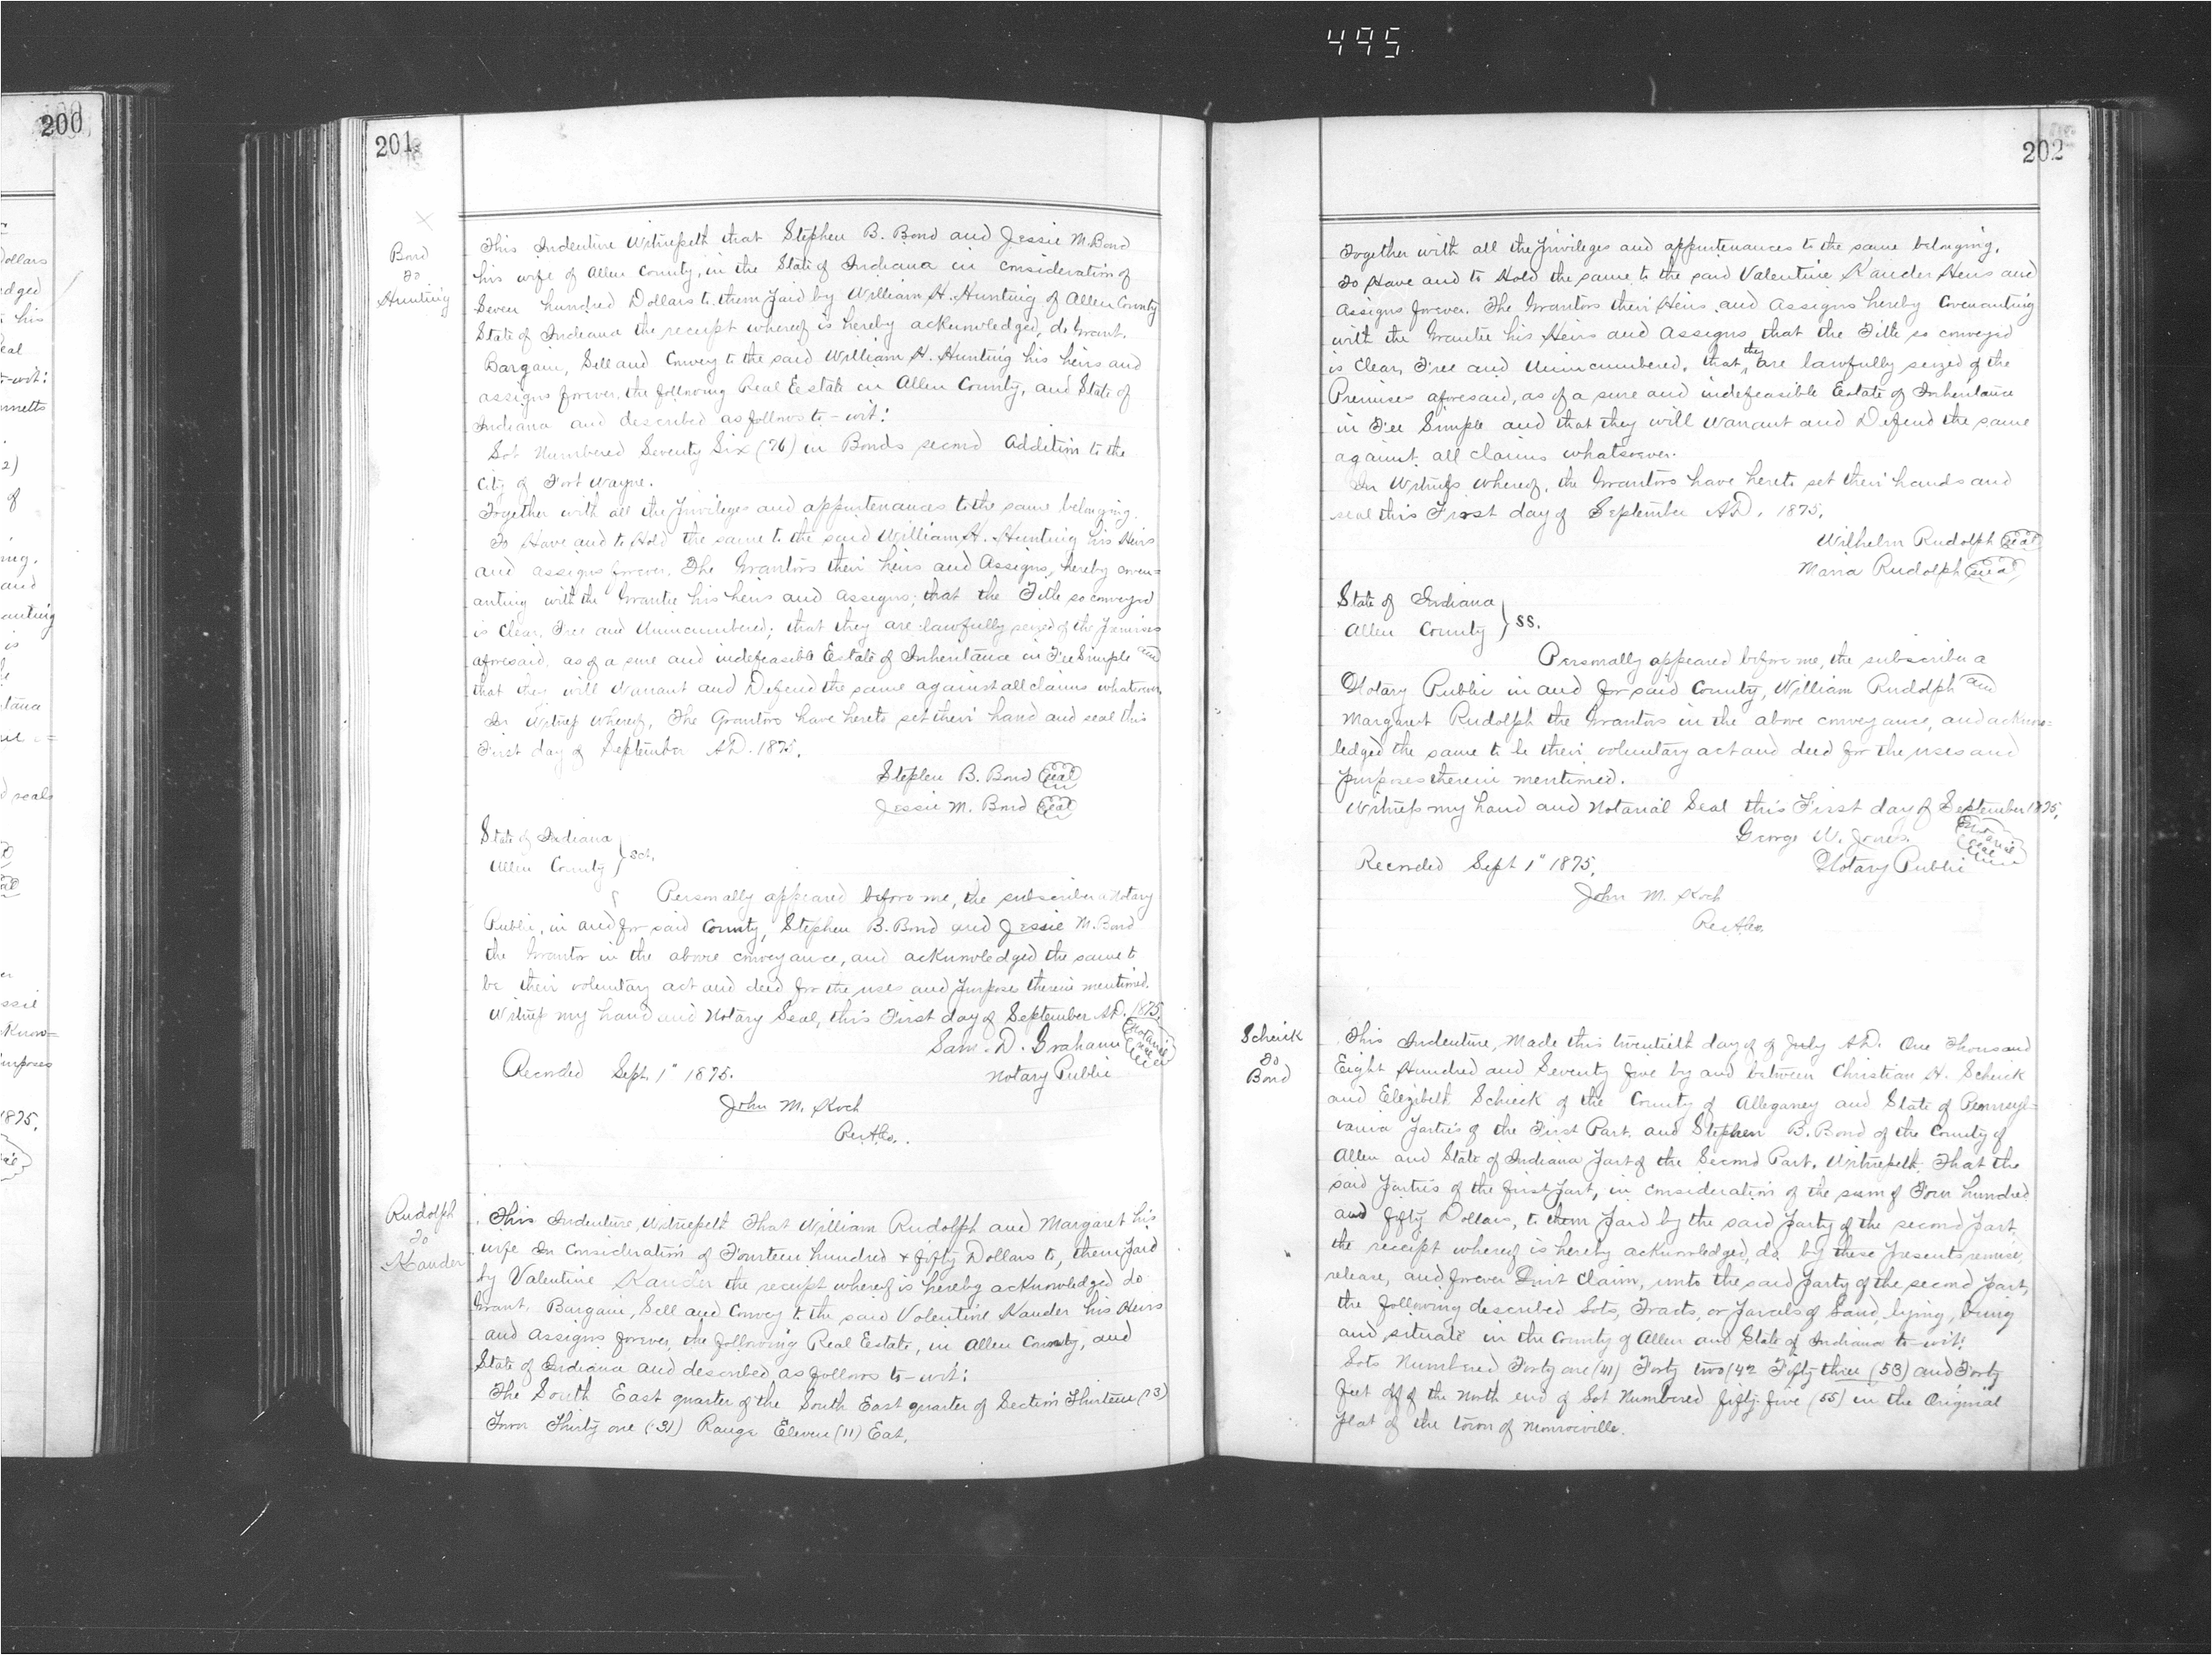 495
200
ollars
edged
his
eal
t-wit:
2)
of
ing.
and
anting
is
tana
seals
Know=
urposes
1875.
201
Bond
to
Hunting
This Indenture Witnesseth that Stephen B. Bond and Jessie M. Bond
his wife of Allen County, in the State of Indiana in consideration of
Seven hundred Dollars to them paid by William H. Hunting of Allen County
State of Indiana the receipt whereof is hereby acknowledged, do Grant.
Bargain, Sell and Convey to the said William H. Hunting his heirs and
assigns forever, the following Real Estate in Allen County, and State of
Indiana and described as follows to-wit:
Lot Numbered Seventy Six (76) in Bonds second Addition to the
City of Fort Wayne.
Together with all the Privileges and appurtenances to the same belonging.
To Have and to Hold the same to the said William H. Hunting his Heirs
and assigns forever. The Grantors their heirs and Assigns, hereby coven=
anting with the Grantee his heirs and assigns; that the Title so conveyed
is Clear, Free and Unincumbered; that they are lawfully seized of the Premises
aforesaid, as of a sure and indefeasible Estate of Inheritance in Fee Simple and
that they will Warrant and Defend the same against all claims whatsoever.
In Witness Whereof, The Grantors have hereto set their hand and seal this
First day of September AD. 1875.
Stephen B. Bond Seal
Jessie M. Bond Seal
State of Indiana
Allen County } Sct.
Personally appeared before me, the subscriber a Notary
Public, in and for said County, Stephen B. Bond and Jessie M. Bond
the Grantor in the above conveyance, and acknowledged the same to
be their voluntary act and deed for the uses and Purposes therein mentioned.
Witness my hand and Notary Seal, this First day of September AD. 1875.
Sam. D. Graham Notarial Seal
Recorded Sept 1" 1875. Notary Public
John M. Koch
RecAlCo.
Rudolph
to
Kander
This Indenture, Witnesseth That William Rudolph and Margaret his
wife In Consideration of Fourteen hundred & fifty Dollars to, them paid
by Valentine Kander the receipt whereof is hereby acknowledged do
Grant, Bargain, Sell and Convey to the said Valentine Kander his Heirs
and Assigns forever, the following Real Estate, in Allen County, and
State of Indiana and described as follows to-wit:
The South East quarter of the South East quarter of Section Thirteen (13)
Town Thirty one (31) Range Eleven (11) Eat.
202
Together with all the Privileges and appurtenances to the same belonging.
To Have and to Hold the same to the said Valentine Kander Heirs and
Assigns forever. The Grantors their Heirs and Assigns hereby Covenanting
with the Grantee his Heirs and Assigns, that the Title so conveyed
is Clear, Free and Unincumbered, that they are lawfully seized of the
Premises aforesaid, as of a sure and indefeasible Estate of Inheritance
in Fee Simple and that they will Warrant and Defend the same
against all claims whatsoever.
In Witness Whereof, the Grantors have hereto set their hands and
seal this First day of September AD. 1875.
Wilhelm Rudolph Seal
Maria Rudolph Seal
State of Indiana
Allen County } SS.
Personally appeared before me, the subscriber a
Notary Public in and for said County, William Rudolph and
Margaret Rudolph the Grantors in the above conveyance, and acknow=
ledged the same to be their voluntary act and deed for the uses and
Purposes therein mentioned.
Witness my hand and Notarial Seal this First day of September 1875.
George W. Jones. Notarial Seal
Recorded Sept 1" 1875. Notary Public
John M. Koch
RecAlCo.
Scheick
to
Bond
This Indenture, Made this twentieth day of of July AD. One Thousand
Eight Hundred and Seventy five by and between Christian H. Scheick
and Elezibeth Scheick of the County of Alleganey and State of Pennsyl=
vania Parties of the First Part. and Stephen B. Bond of the County of
Allen and State of Indiana Part of the Second Part. Witnesseth. That the
said Parties of the first part, in consideration of the sum of Four hundred
and fifty Dollars, to them paid by the said party of the second part,
the receipt whereof is hereby acknowledged, do by these presents remise,
release, and forever Quit Claim, unto the said party of the second part,
the following described Lots, Tracts, or Parcels of Land, lying, being
and situate in the County of Allen and State of Indiana to-wit:
Lots Numbered Forty one (41) Forty two (42 Fifty three (53) and Forty
feet off of the North end of Lot Numbered fifty-five (55) in the Original
plat of the town of Monroeville.